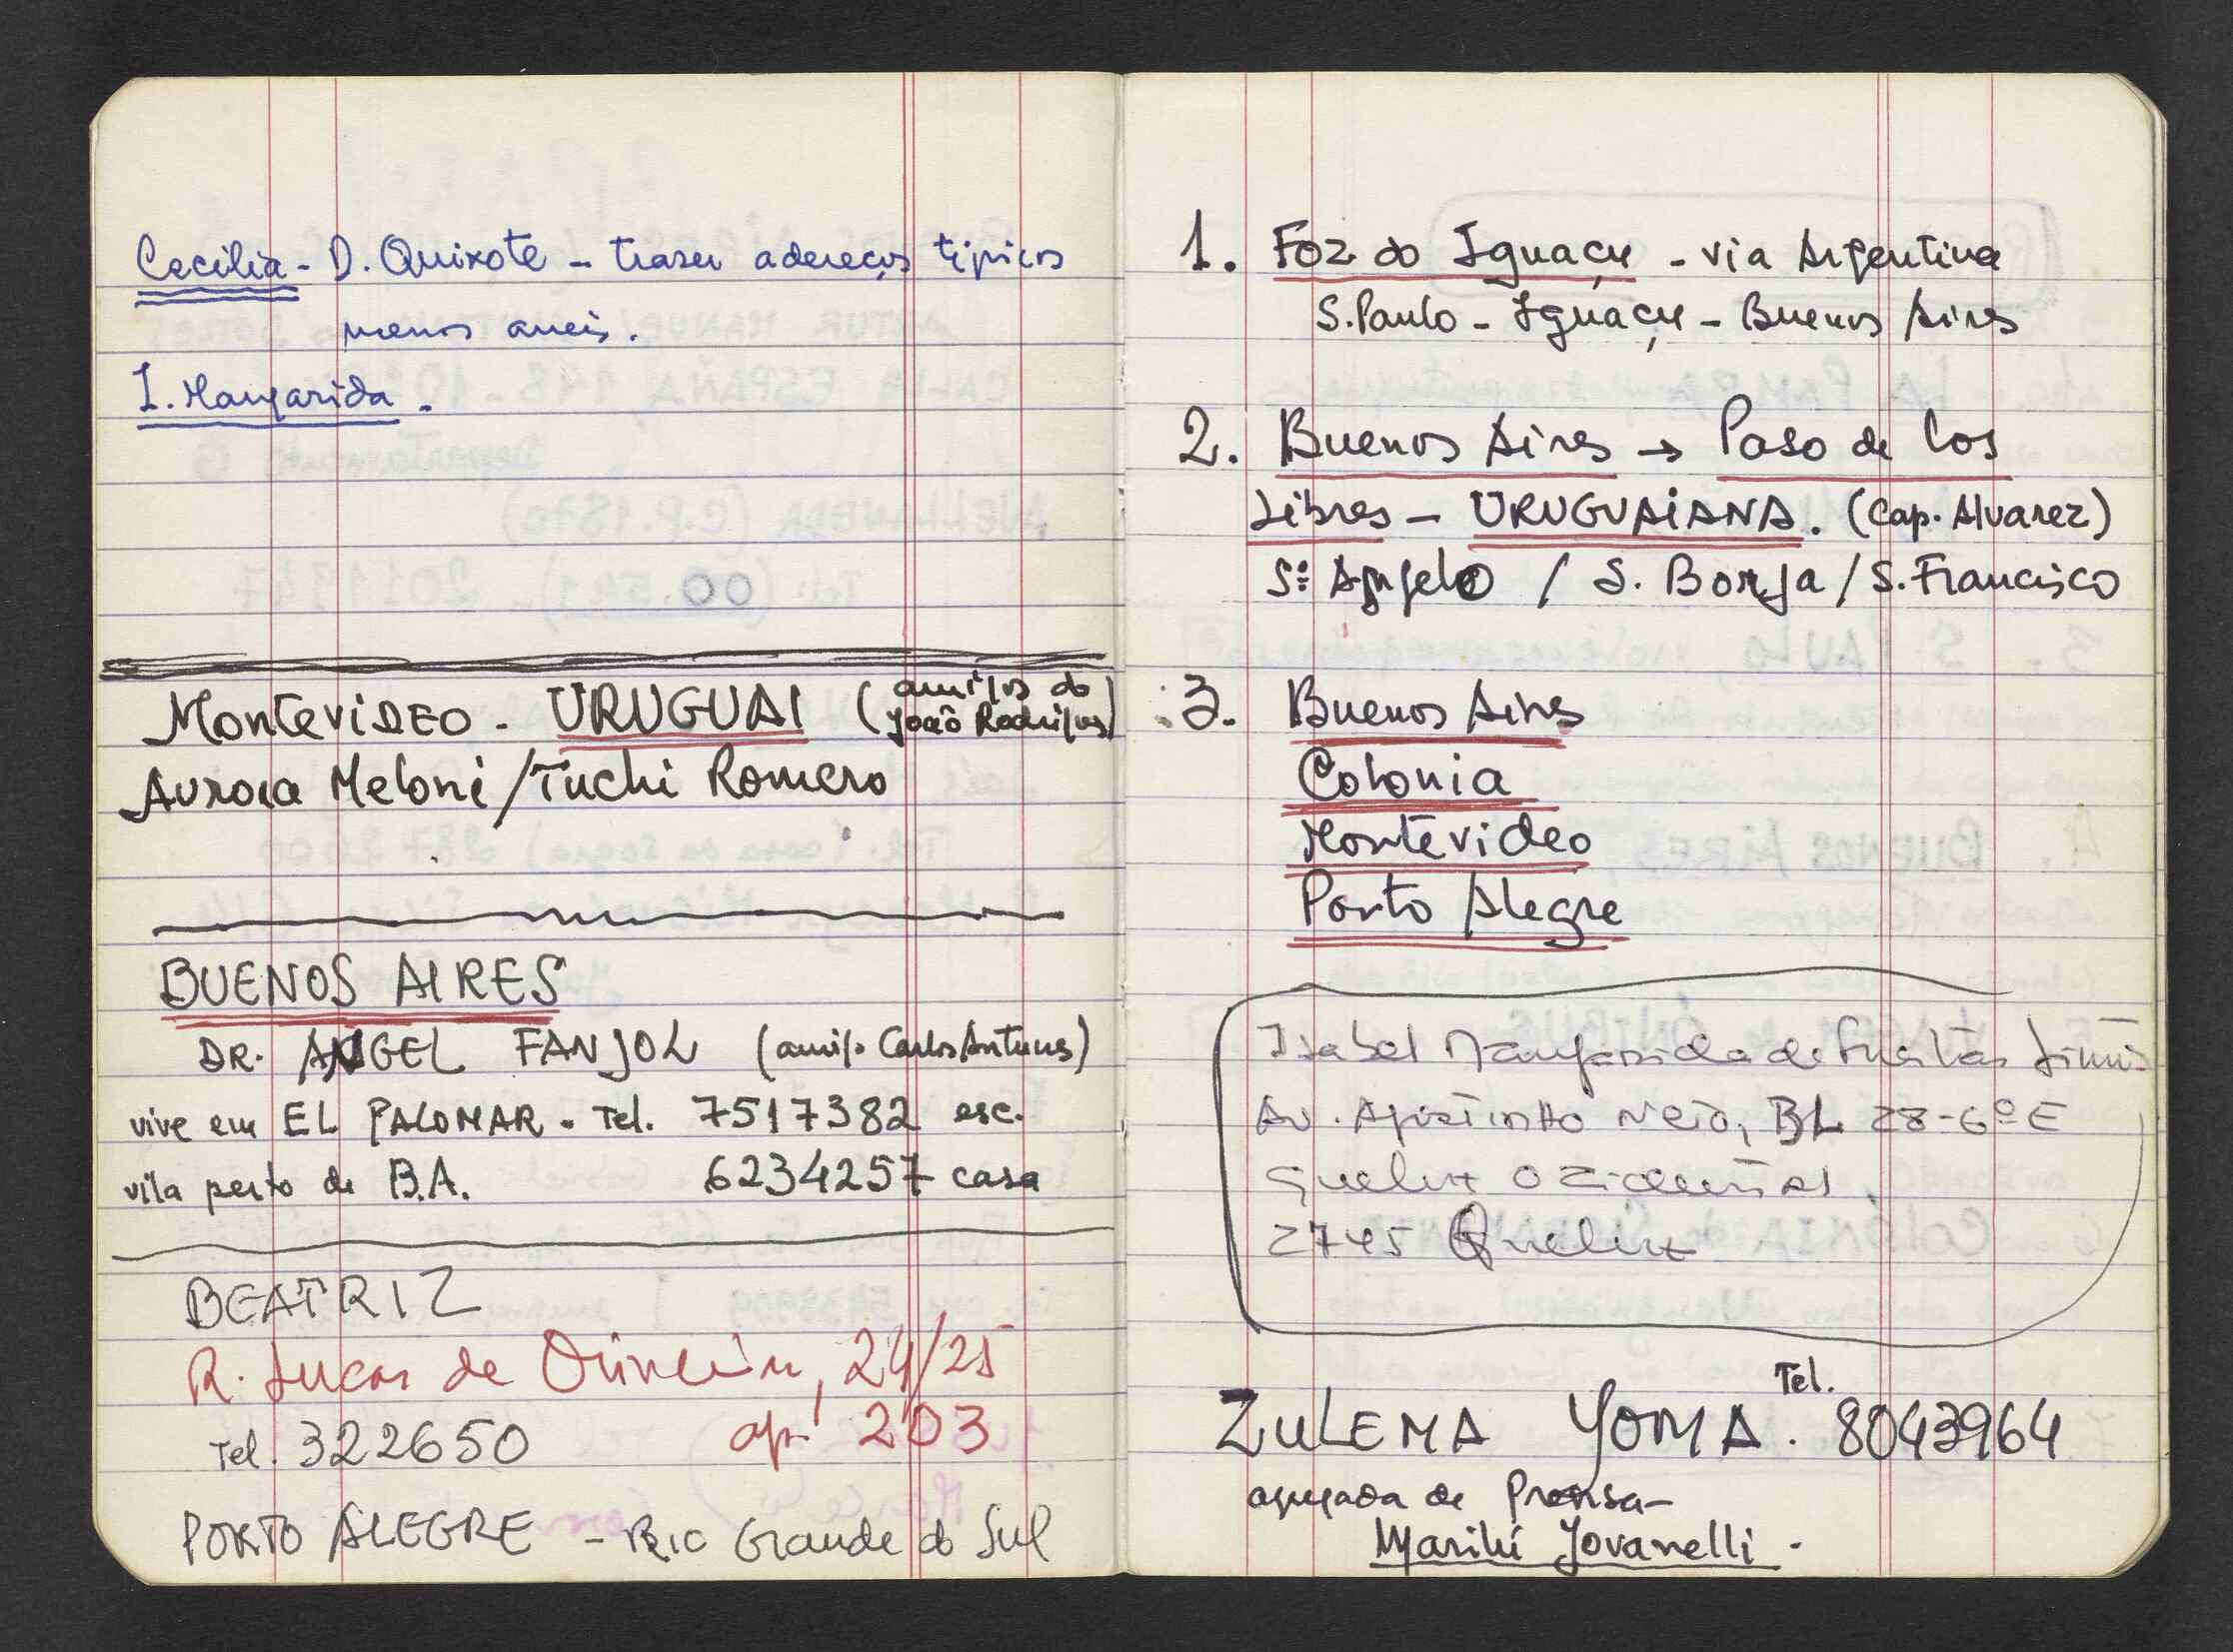 Cecília - D. Quixote - trazer adereços típicos
menos aneis.
I. Margarida -
MonteviDEO - URUGUAI (amigos do
João Rodrigues)
Aurora Meloni / Tuchi Romero
BUENOS AIRES
DR. ANGEL FANJOL (amigo Carlos Antunes)
vive em EL PALOMAR - Tel. 7517382 esc.
vila perto de B.A. 6234257 casa
BEATRIZ
R. Lucas de Oliveira, 24/25
Tel. 322650 ap. 203
PORTO ALEGRE - Rio Grande do Sul
1. Foz do Iguaçu - via Argentina
S. Paulo - Iguaçu - Buenos Aires
2. Buenos Aires → Paso de los
Libres - URUGUAIANA. (Cap. Alvarez)
Sº Angelo / S. Borja / S. Francisco
3. Buenos Aires
Colonia
Montevideo
Porto Alegre
Isabel Margarida de Freitas
Av. Agostinho Neto, BL 28-6º E
Queluz Ocidental.
2745 Queluz
Tel.
ZULEMA YOMA. 8043964
agregada de Prensa -
Marilú Jovanelli -